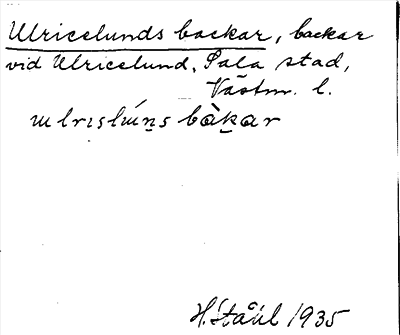 Ulricelunds backar, backar
vid Ulricelund, Sala stad,
Västm. l.
ɯlrɪslɯ́n̠s bàk̠ar
H. Ståhl 1935